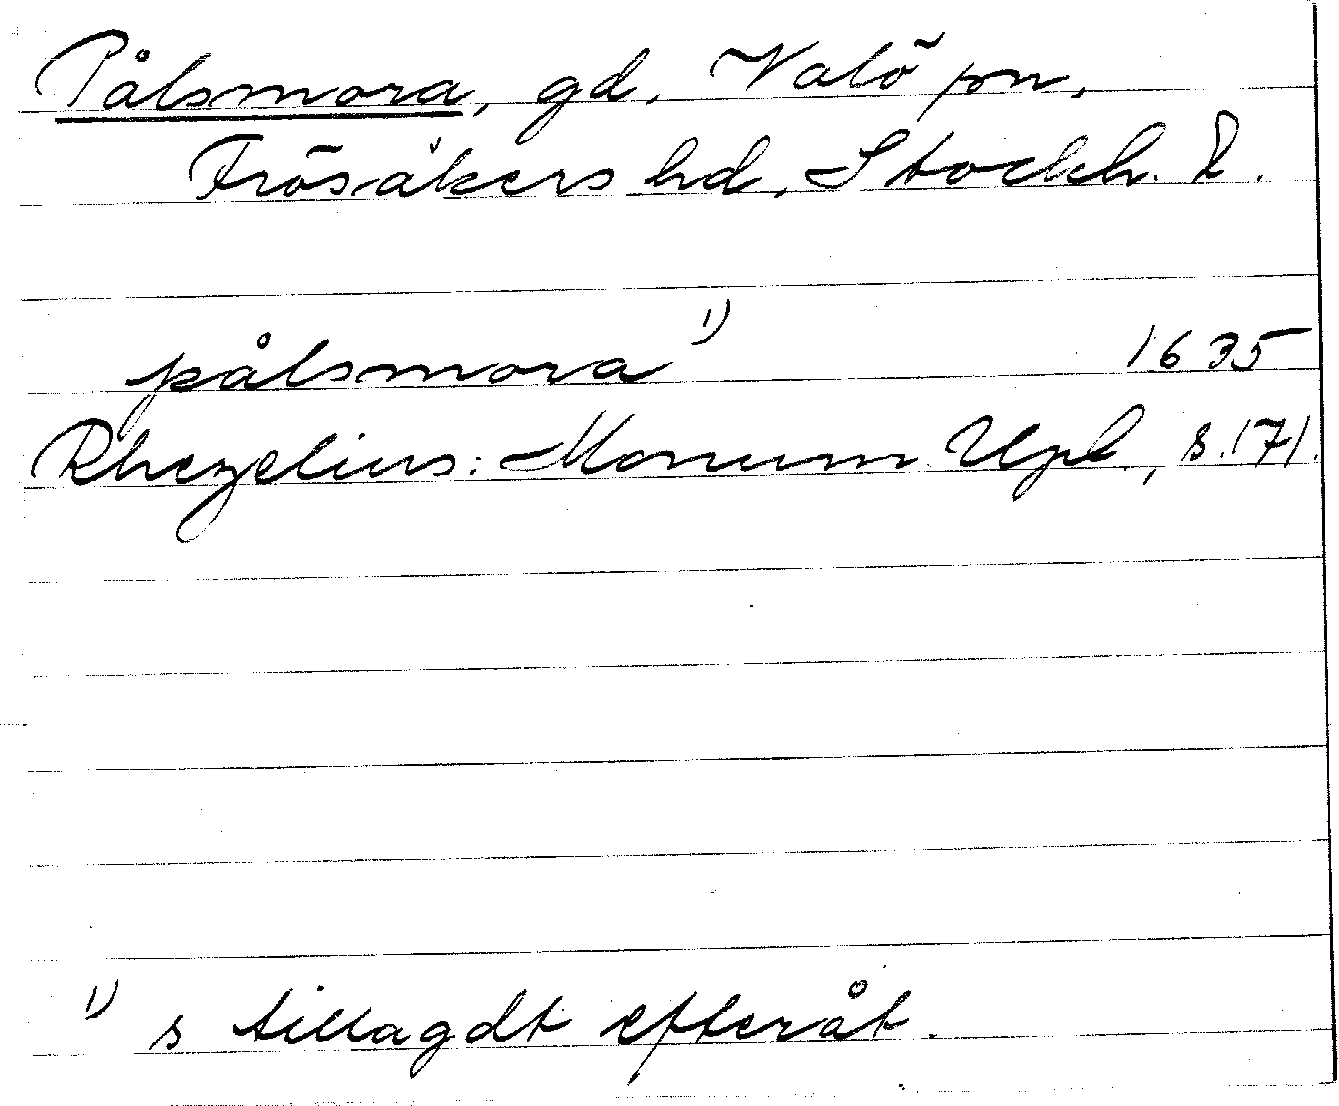 Pålsmora, gd, Valö sn,
Frösåkers hd, Stockh. l.
pålsmora 1) 1635
Rhezelius: Monum. Upl., s. 171.
1) s tillagdt efteråt.